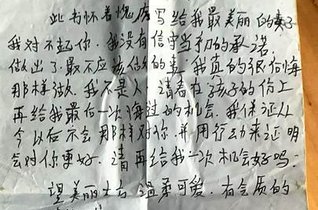 此书怀着愧疚写给我最美丽的妻子
我对不起你.我没有信守当初的承诺
做出了最不应该做的事.我真的很后悔
那样做.我不是人 请看在孩子的份上
再给我最后一次悔过的机会.我保证从
今以后不会那样对你.并用行动来证明
会对你更好.请再给我一次机会好吗.
望美丽大方 温柔可爱.有气质的